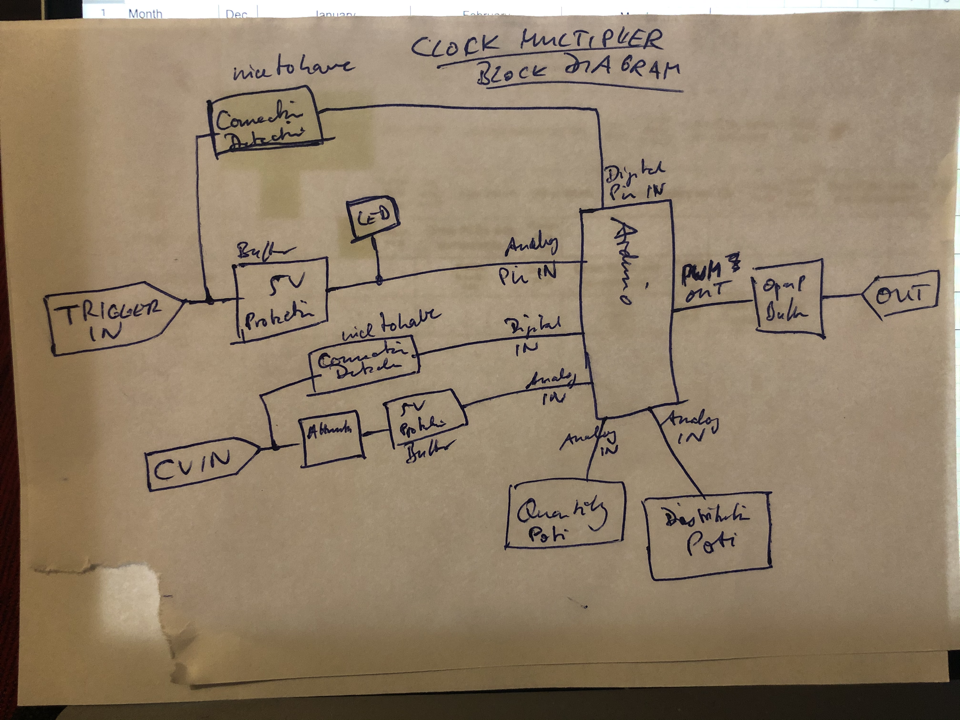 1 Month Dec January February
CLOCK MULTIPLIER
BLOCK DIAGRAM
nice to have
Connection
Detection
Digital
Pin IN
LED
Buffer
5V
Protection
Analog
Pin IN
Arduino
PWM
OUT
OpAmp
Buffer
OUT
TRIGGER
IN
nice to have
Connection
Detection
Digital
IN
Analog
IN
5V
Protection
Buffer
CV IN
Analog
IN
Analog
IN
Quantity
Poti
Distribution
Poti